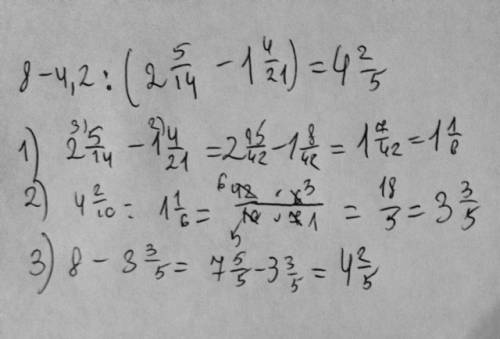 8 - 4,2 : (2 5/14 - 1 4/21) = 4 2/5
1) 2 ³⁾5/14 - 1 ²⁾4/21 = 2 15/42 - 1 8/42 = 1 7/42 = 1 1/6
2) 4 2/10 : 1 1/6 = 6 42 · 6 3 / 10 · 7 1 5 = 18/5 = 3 3/5
3) 8 - 3 3/5 = 7 5/5 - 3 3/5 = 4 2/5